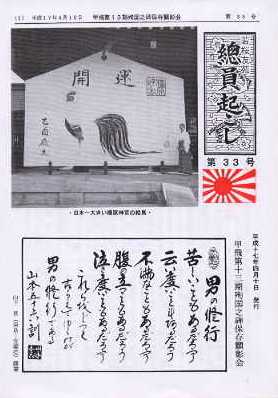 (1) 平成17年4月10日 甲飛第13期殉国之碑保存顕彰会 第33号
總員起こし
第33号
開運
乙酉歳
・日本一大きい橿原神宮の絵馬・
平成十七年四月十日 発行
甲飛第十三期殉国之碑保存顕彰会
男の修行
苦しいこともあるだろう
云い度いこともあるだろう
不満なこともあるだろう
腹の立つこともあるだろう
泣き度いこともあるだろう
これらをじっと
こらえてゆくのが
男の修行である
山本五十六